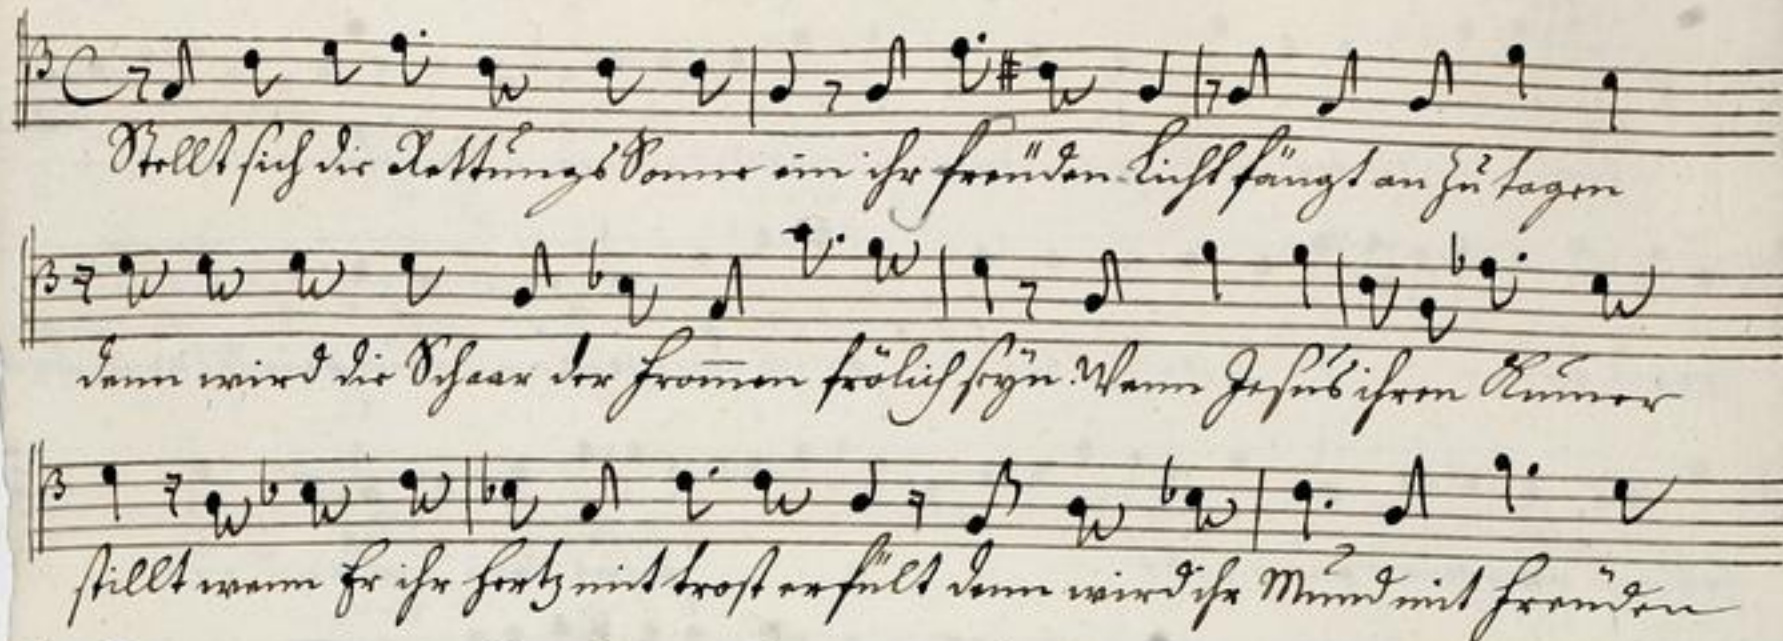 Stellt sich die Rettungs Sonne ein ihr freuden Licht fängt an zu tagen
denn wird die Schaar der From̄en frölich seÿn. Wenn Jesus ihren Kum̄er
stillt wenn Er ihr Hertz mit trost erfült denn wird ihr Mund mit Freuden